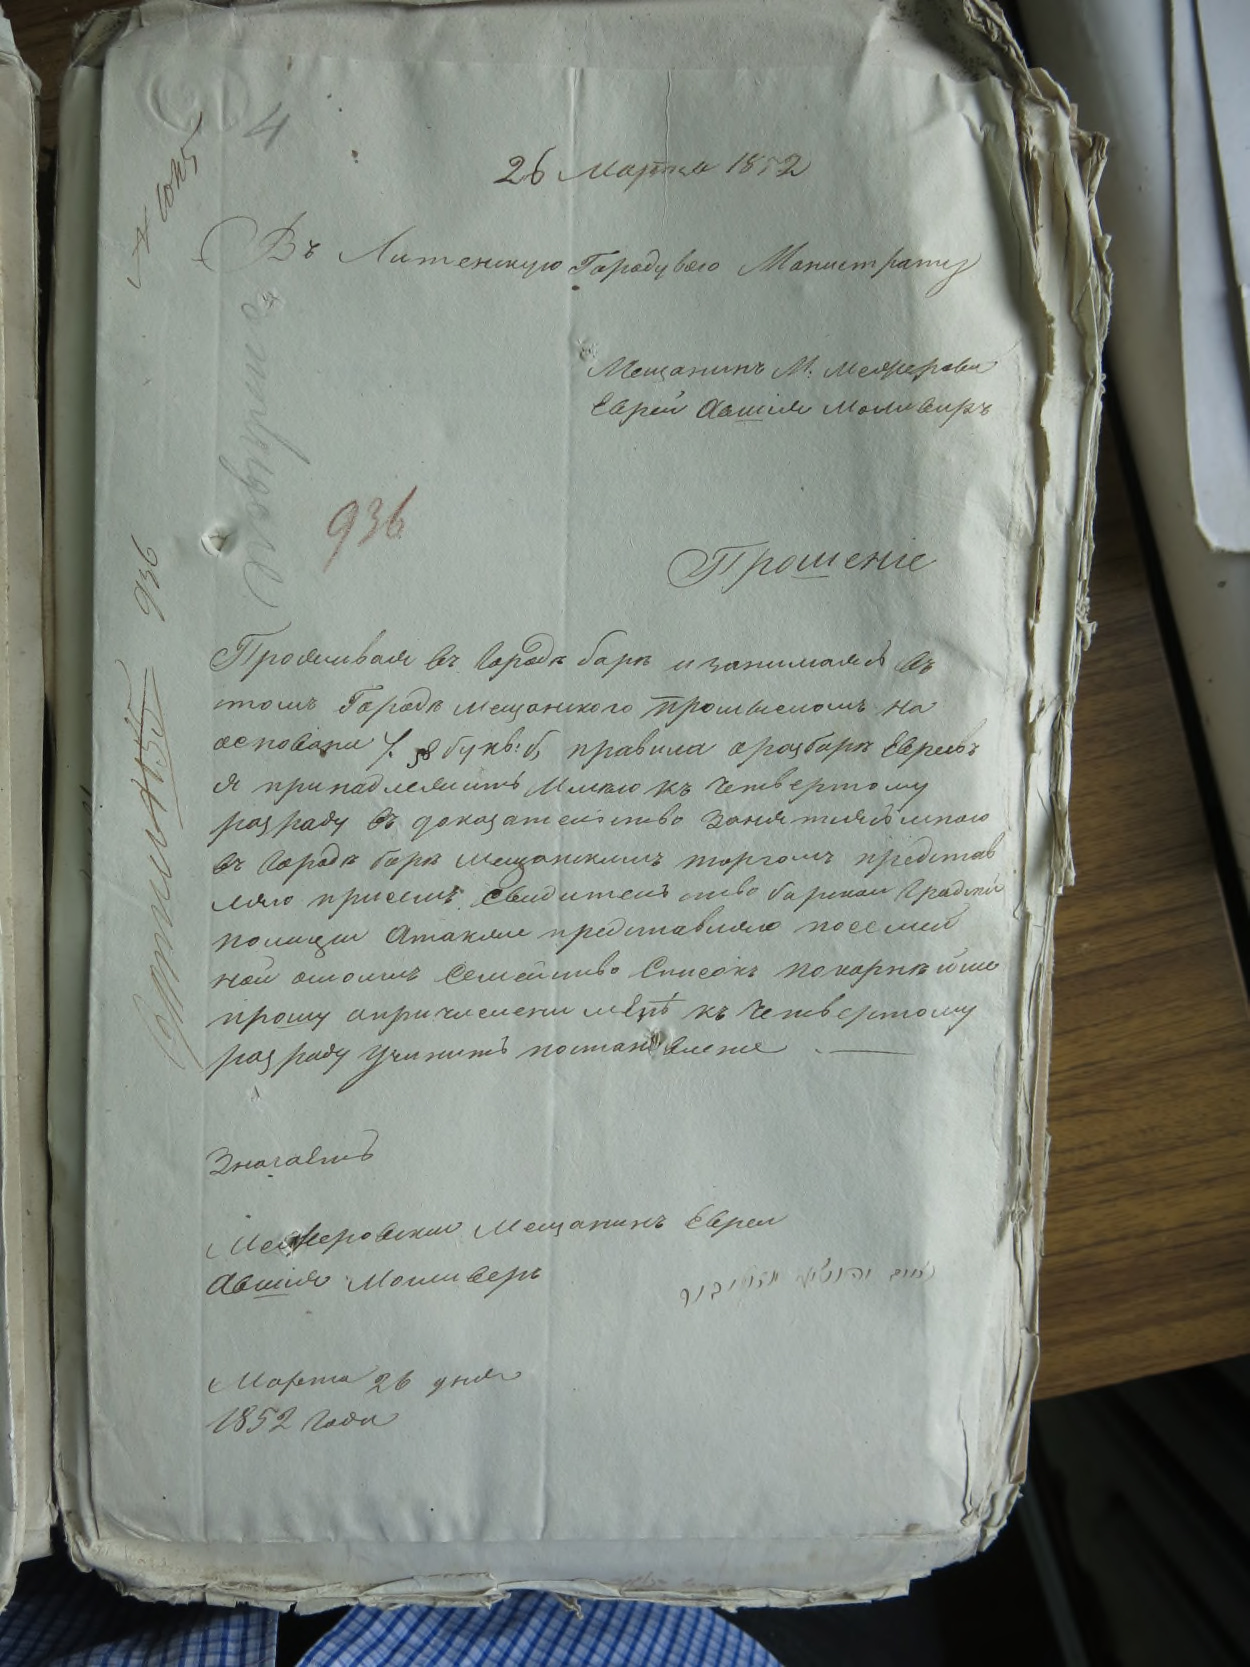 4
26 Марта 1852
Въ Литенскую Городувою Магистрату
Мещанинъ М. Межерова
Еврей Авшия Моливеръ
936
Прошеніе
Проживая въ Городѣ барѣ и занимаясь въ
томъ Городѣ мещанского промысломъ на
основани букв: б, правила о разборѣ Евреевъ
я принадлежить имею къ Четвертому
разряду въ доказателство занятия мною
въ Городѣ барѣ мещанскимъ торгомъ представ
ляю присемъ Свидителство барской Градской
полиции Атакже представляю посемей
ной омоимъ Семействе Списокъ покорнейше
прошу опричислени мѣнѣ къ Четвертому
разряду Учинить постановление . —
Межеровский Мещанинъ Еврей
Авшия Моливеръ
Марта 26 дня
1852 Года
936